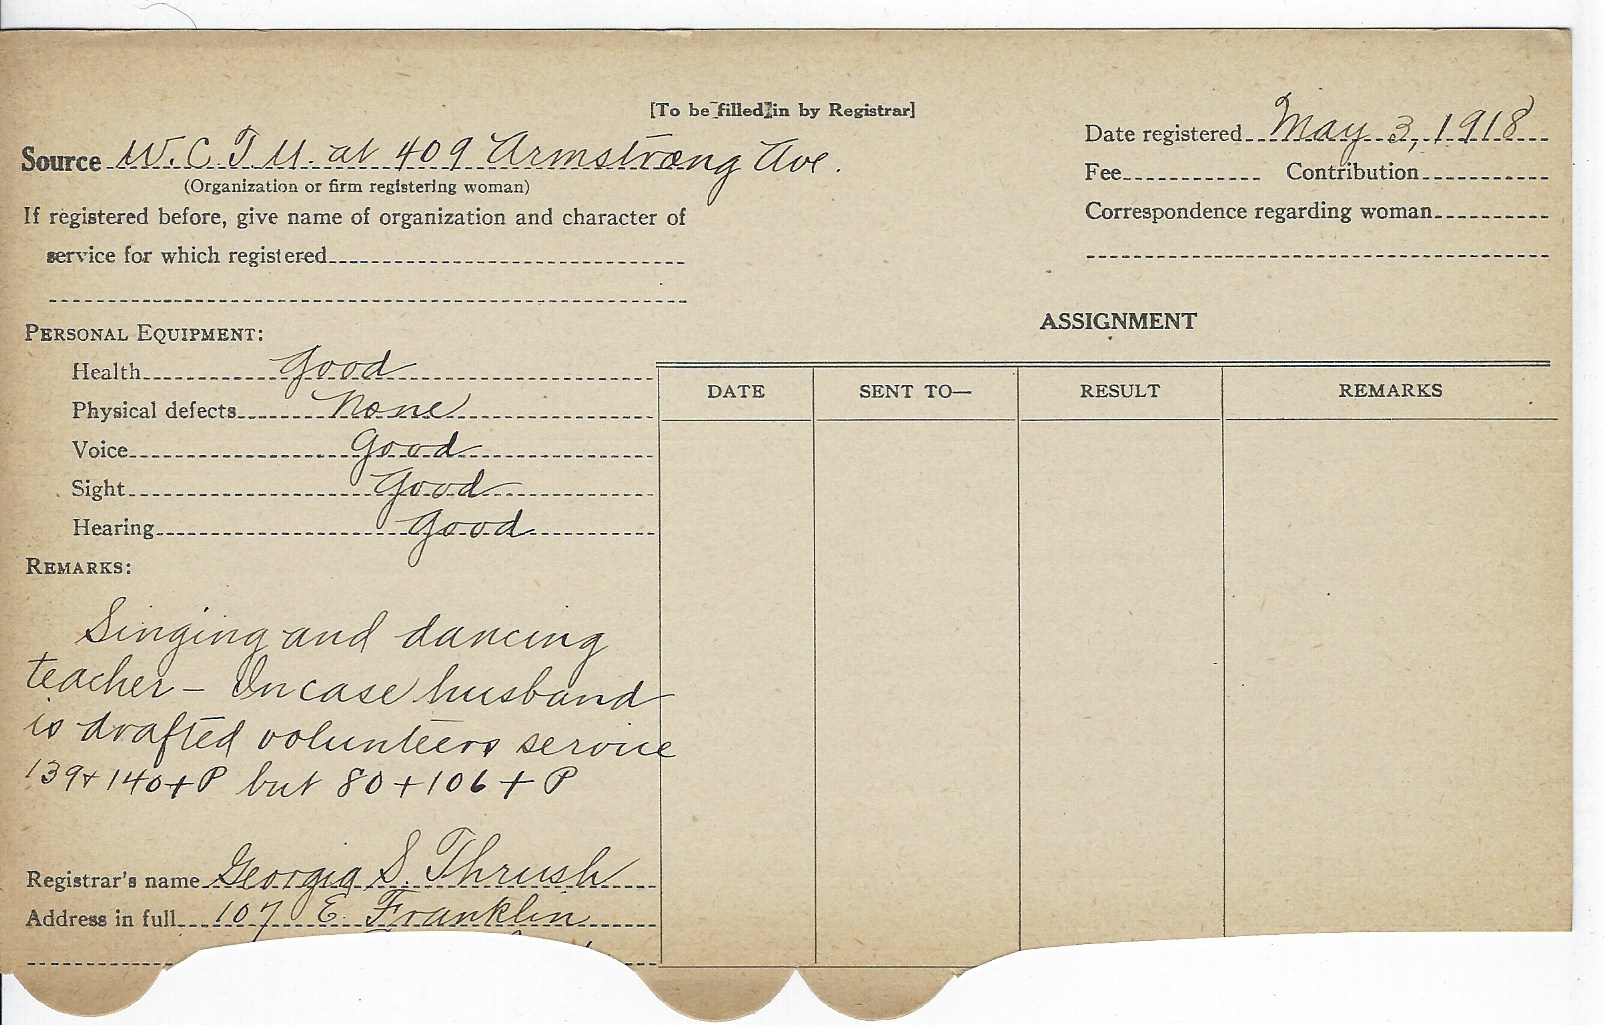 [To be filled in by Registrar]
Source W. C. T. U. at 409 Armstrong Ave.
(Organization or firm registering woman)
If registered before, give name of organization and character of
service for which registered
Date registered May 3, 1918
Fee Contribution
Correspondence regarding woman
PERSONAL EQUIPMENT:
Health Good
Physical defects None
Voice Good
Sight Good
Hearing Good
REMARKS:
Singing and dancing
teacher – In case husband
is drafted volunteers service
139+140+P but 80+106+P
Registrar's name Georgia S. Thrush
Address in full 107 E. Franklin
ASSIGNMENT
DATE SENT TO— RESULT REMARKS